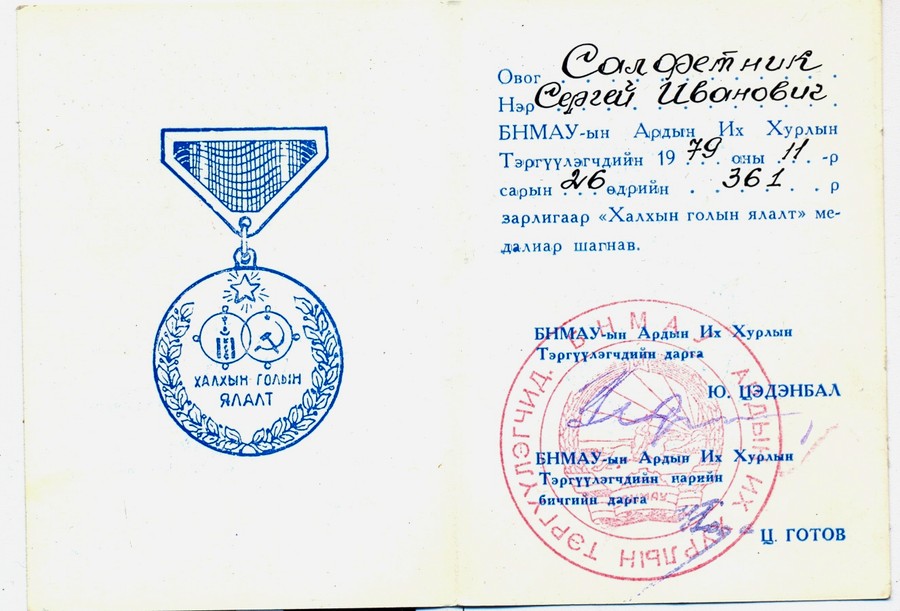 ХАЛХЫН ГОЛЫН
ЯЛАЛТ
Овог Салфетник
Нэр Сергей Иванович
БНМАУ-ын Ардын Их Хурлын
Тэргүүлэгчдийн 1979 оны 11-р
сарын 26 өдрийн 361 р
зарлигаар «Халхын голын ялалт» ме-
далиар шагнав.
БНМАУ-ын Ардын Их Хурлын
Тэргүүлэгчдийн дарга
Ю. ЦЭДЭНБАЛ
БНМАУ-ын Ардын Их Хурлын
Тэргүүлэгчдийн нарийн
бичгийн дарга
Ц. ГОТОВ
БНМАУ АРДЫН ИХ ХУРЛЫН ТЭРГҮҮЛЭГЧИД.
БНМАУ